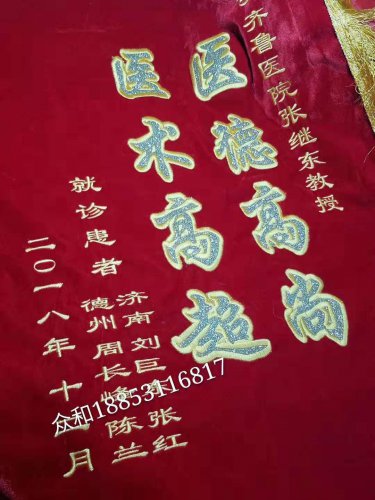 齐鲁医院张继东教授
医德高尚
医术高超
就诊患者
济南刘巨 张红
德州周长 陈兰
二〇一八年十 月
众和18853116817